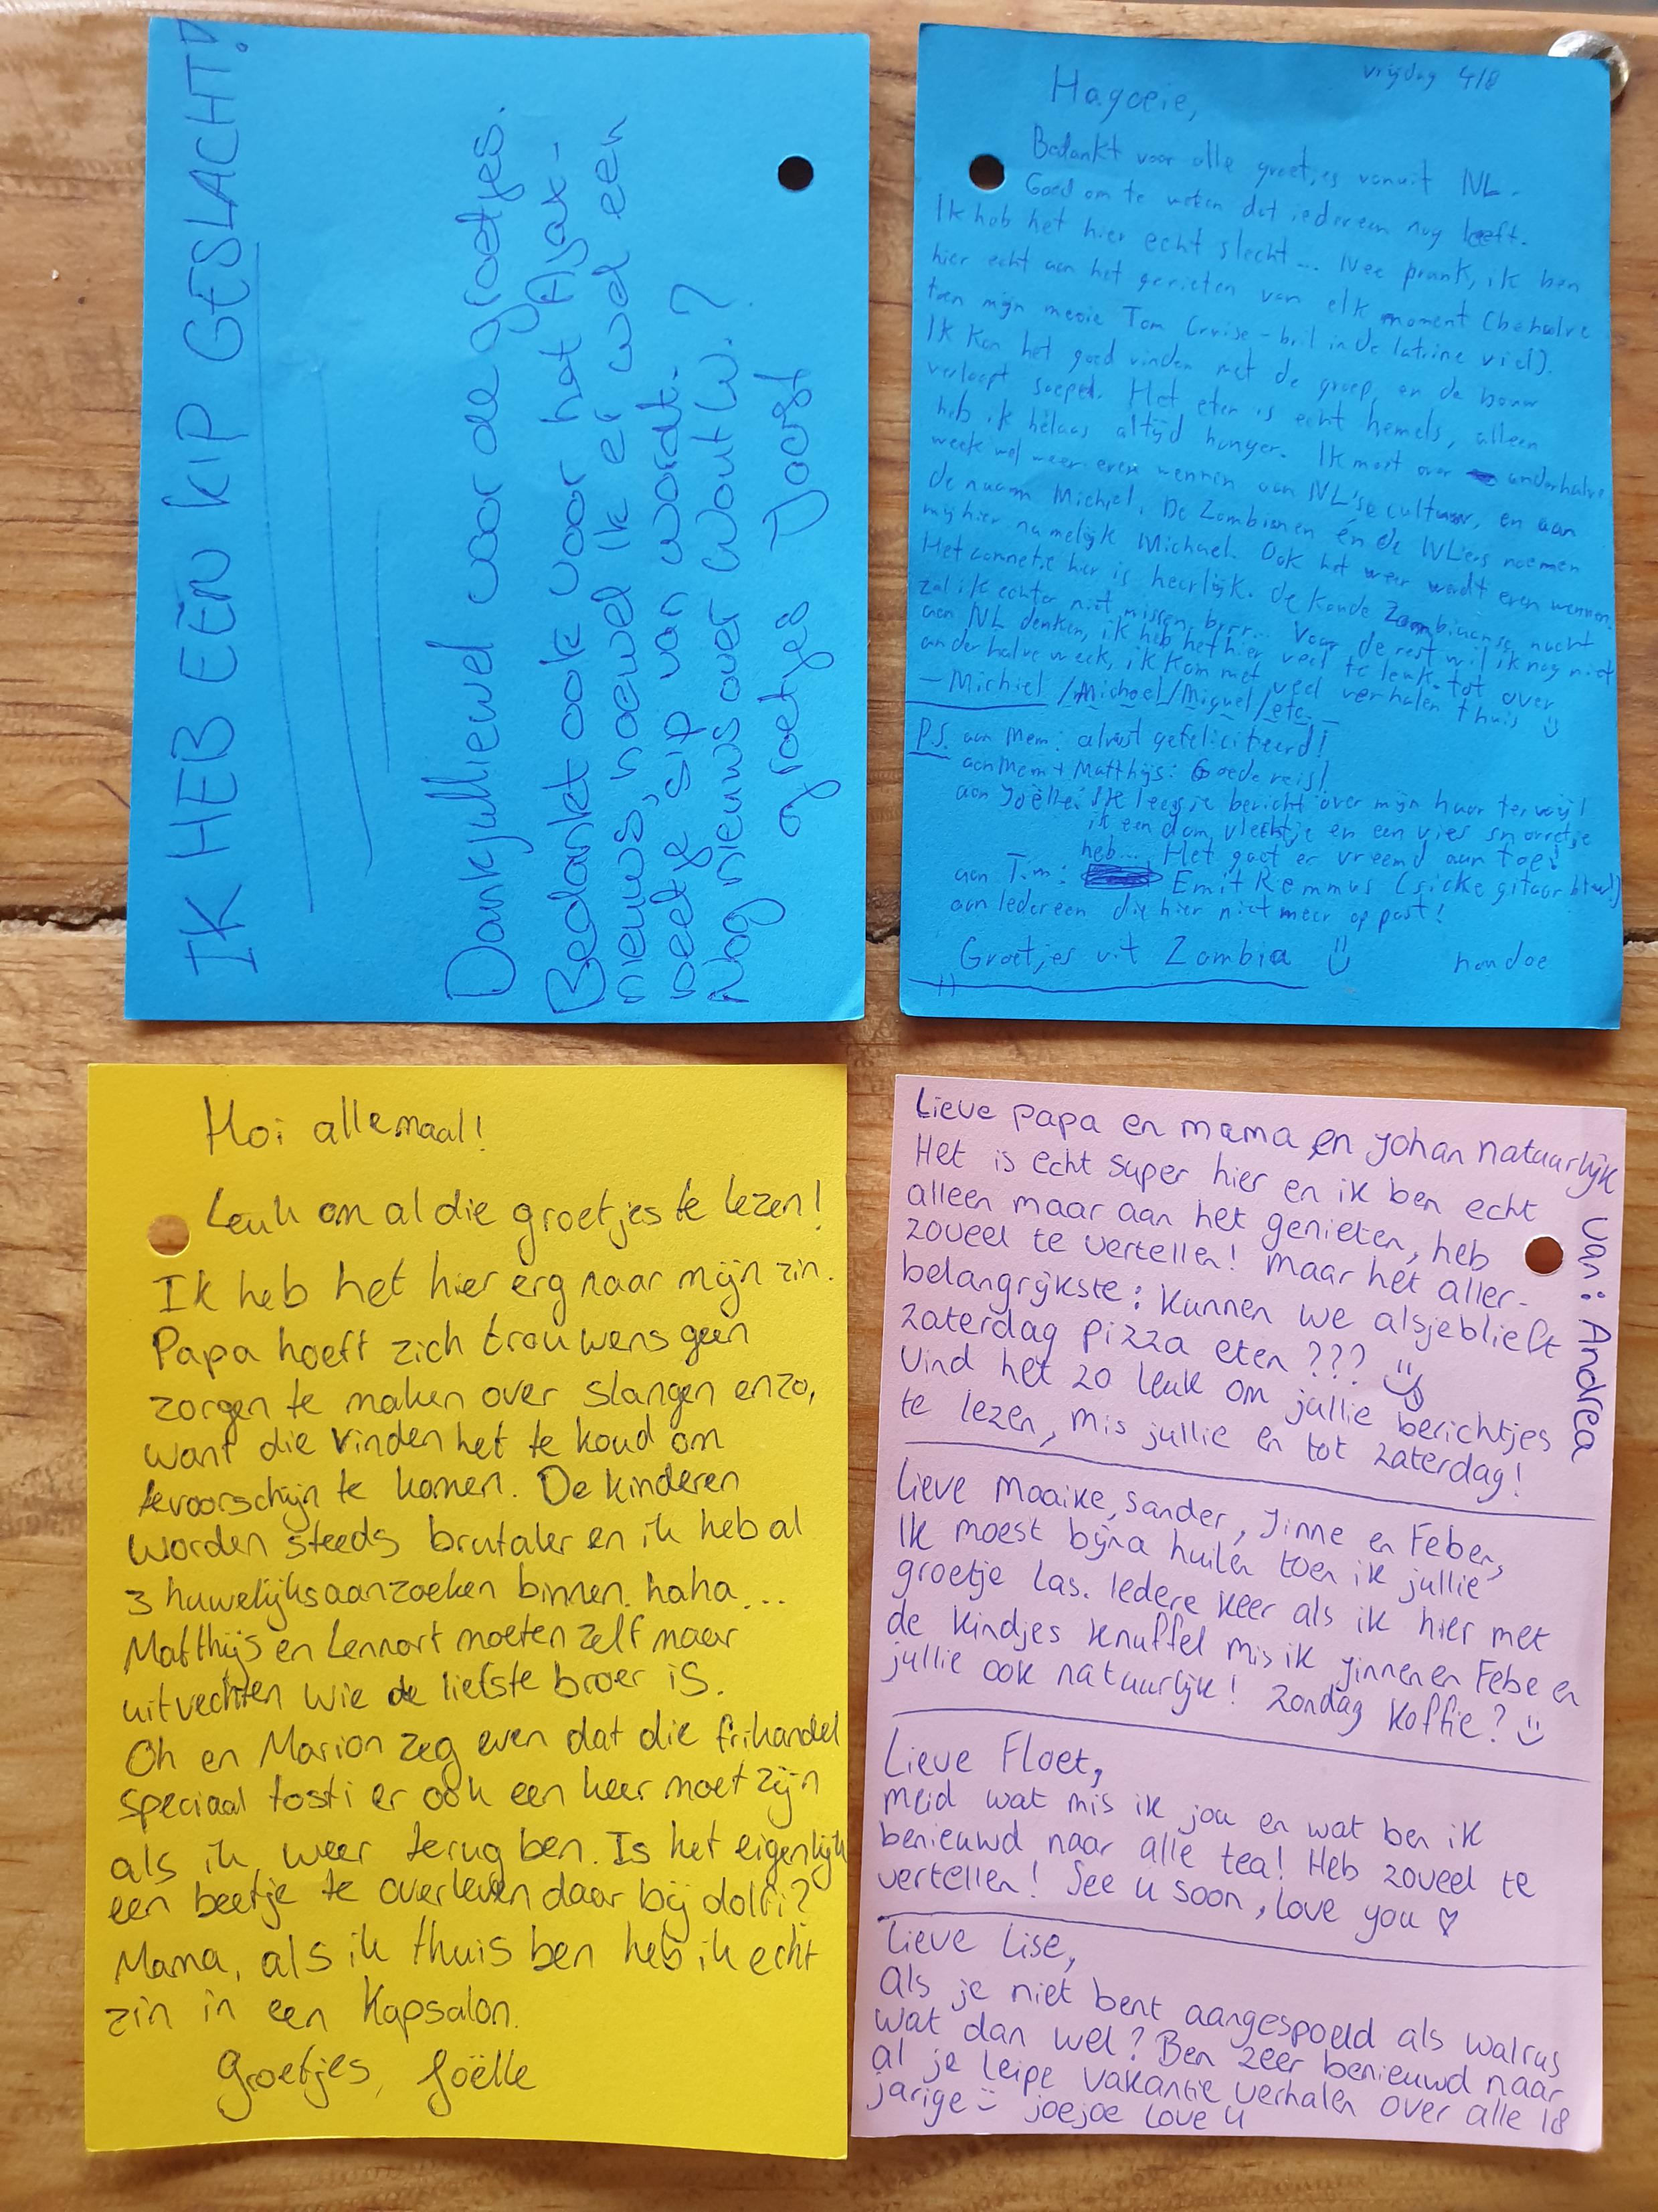 IK HEB EEN KIP GESLACHT!
Dankjulliewel voor de groetjes.
Bedankt ook voor het Ajax-
nieuws, hoewel ik er wel een
beetje sip van wordt.
Nog nieuws over Wout W.?
groetjes Joost
vrijdag 4/8
Hagoeie,
Bedankt voor alle groetjes vanuit NL.
Goed om te weten dat iedereen nog leeft.
Ik heb het hier echt slecht... Nee prank, ik ben
hier echt aan het genieten van elk moment (behalve
toen mijn mooie Tom Cruise-bril in de latrine viel).
Ik kan het goed vinden met de groep, en de bouw
verloopt soepel. Het eten is echt hemels, alleen
heb ik helaas altijd honger. Ik moet over anderhalve
week wel weer even wennen aan NL'se cultuur, en aan
de naam Michiel. De Zambianen én de NL'ers noemen
mij hier namelijk Michael. Ook het weer wordt even wennen.
Het zonnetje hier is heerlijk. De koude Zambiaanse nacht
zal ik echter niet missen, brrr... Voor de rest wil ik nog niet
aan NL denken, ik heb het hier veel te leuk. Tot over
anderhalve week, ik kom met veel verhalen thuis :)
- Michiel / Michael / Miguel / etc. -
P.S. aan Mem: alvast gefeliciteerd!
aan Mem + Matthijs: Goede reis!
aan Joëlle: Ik lees je bericht over mijn haar terwijl
ik een vlechtje en een vies snorretje
heb... Het gaat er vreemd aan toe!
aan Tim: Emit Remmus (sicke gitaar btw!)
aan Iedereen die hier niet meer op past!
Groetjes uit Zambia :)
houdoe
Hoi allemaal!
Leuk om al die groetjes te lezen!
Ik heb het hier erg naar mijn zin.
Papa hoeft zich trouwens geen
zorgen te maken over slangen enzo,
want die vinden het te koud om
tevoorschijn te komen. De kinderen
worden steeds brutaler en ik heb al
3 huwelijksaanzoeken binnen. haha...
Matthijs en Lennart moeten zelf maar
uitvechten wie de liefste broer is.
Oh en Marion zeg even dat die frikandel
speciaal tosti er ook een keer moet zijn
als ik weer terug ben. Is het eigenlijk
een beetje te overleven daar bij dolfi?
Mama, als ik thuis ben heb ik echt
zin in een Kapsalon.
Groetjes, Joëlle
Lieve papa en mama en Johan natuurlijk
Het is echt super hier en ik ben echt
alleen maar aan het genieten, heb
zoveel te vertellen! Maar het aller-
belangrijkste: Kunnen we alsjeblieft
zaterdag pizza eten???
Vind het zo leuk om jullie berichtjes
te lezen, mis jullie en tot zaterdag!
Van: Andrea
Lieve Maaike, Sander, Jinne en Feben,
Ik moest bijna huilen toen ik jullie
groetje las. Iedere keer als ik hier met
de kindjes knuffel mis ik Jinne en Febe en
jullie ook natuurlijk! Zondag koffie? :)
Lieve Floet,
meid wat mis ik jou en wat ben ik
benieuwd naar alle tea! Heb zoveel te
vertellen! See u soon, love you ♡
Lieve Lise,
Als je niet bent aangespoeld als walrus
wat dan wel? Ben zeer benieuwd naar
al je leipe vakantie verhalen over alle 18
jarige :) joejoe love u